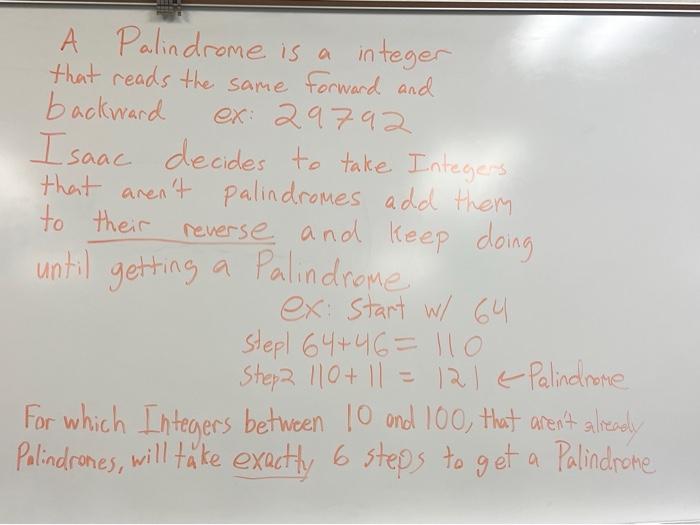 A Palindrome is a integer
that reads the same forward and
backward ex: 29792
Isaac decides to take Integers
that aren't palindromes add them
to their reverse and keep doing
until getting a Palindrome
ex: Start w/ 64
Step1 64+46= 110
Step2 110+11 = 121 ← Palindrome
For which Integers between 10 and 100, that aren't already
Palindromes, will take exactly 6 steps to get a Palindrome